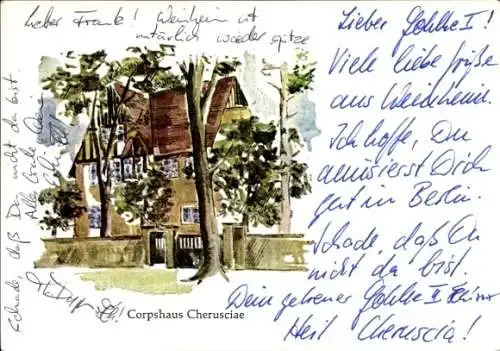 Lieber Frank! Weinheim ist
natürlich wieder spitze
Schade, daß Du nicht da bist.
Alle
Corpshaus Cherusciae
Lieber Gohlke I!
Viele liebe Grüße
aus Weinheim.
Ich hoffe, Du
amüsierst Dich
gut in Berlin.
Schade, daß Du
nicht da bist.
Dein getreuer Gohlke II
Heil Cheruscia!